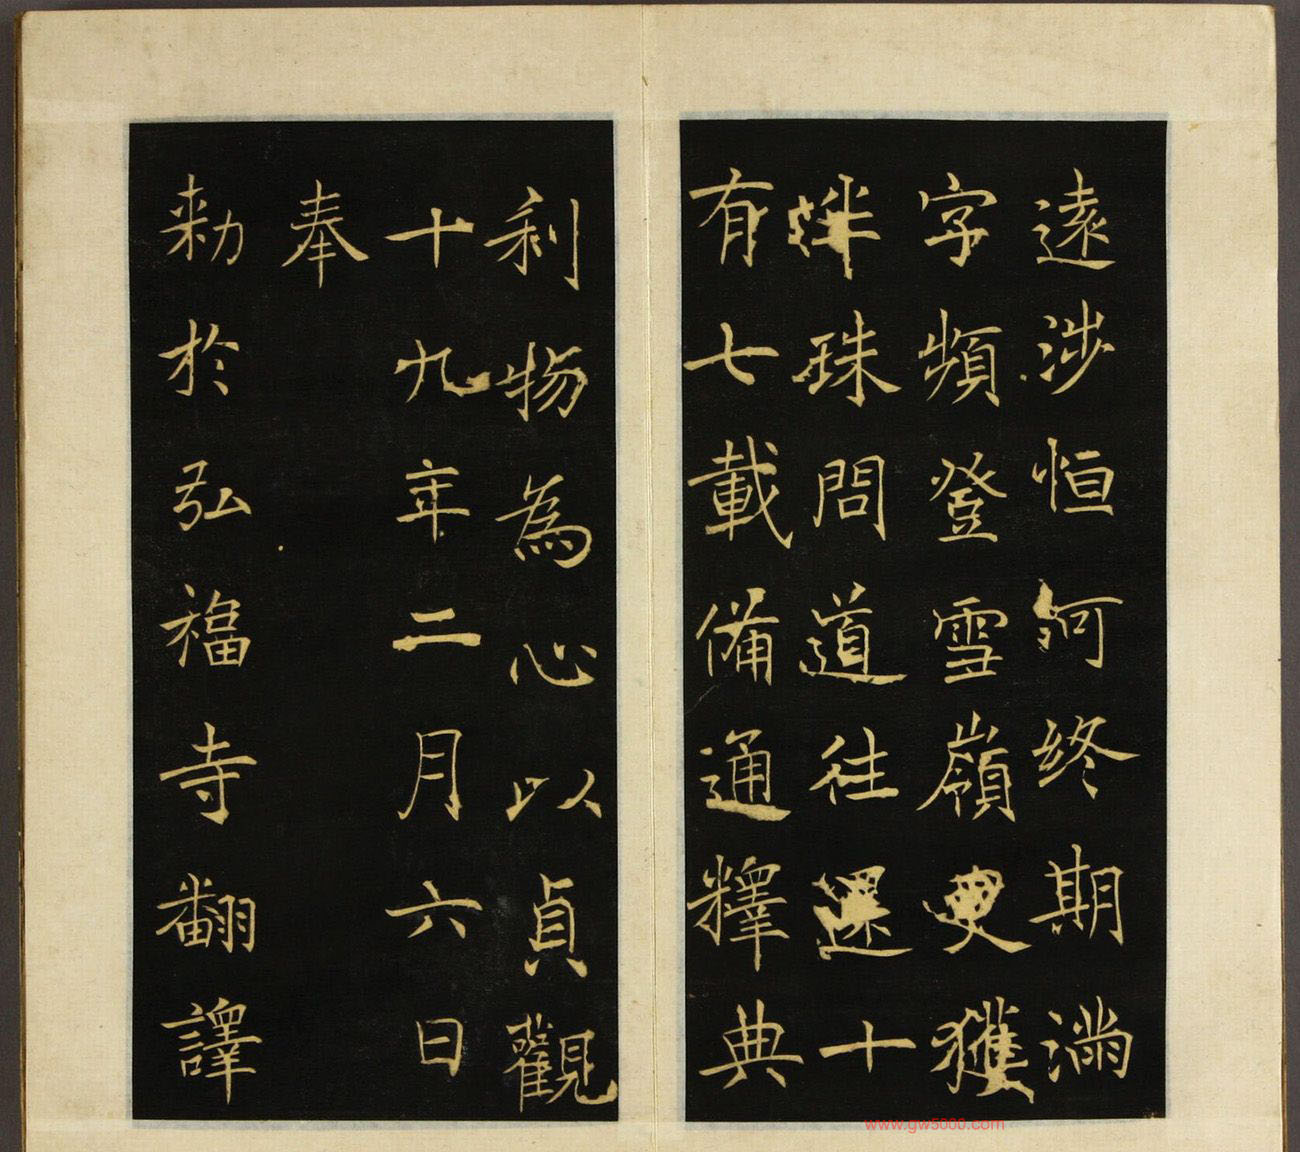 遠涉恒河終期滿
字頻登雪嶺更獲
珠問道往還十
有七載備通釋典
利物為心以貞觀
十九年二月六日
奉
勅於弘福寺翻譯
www.gw5000.com